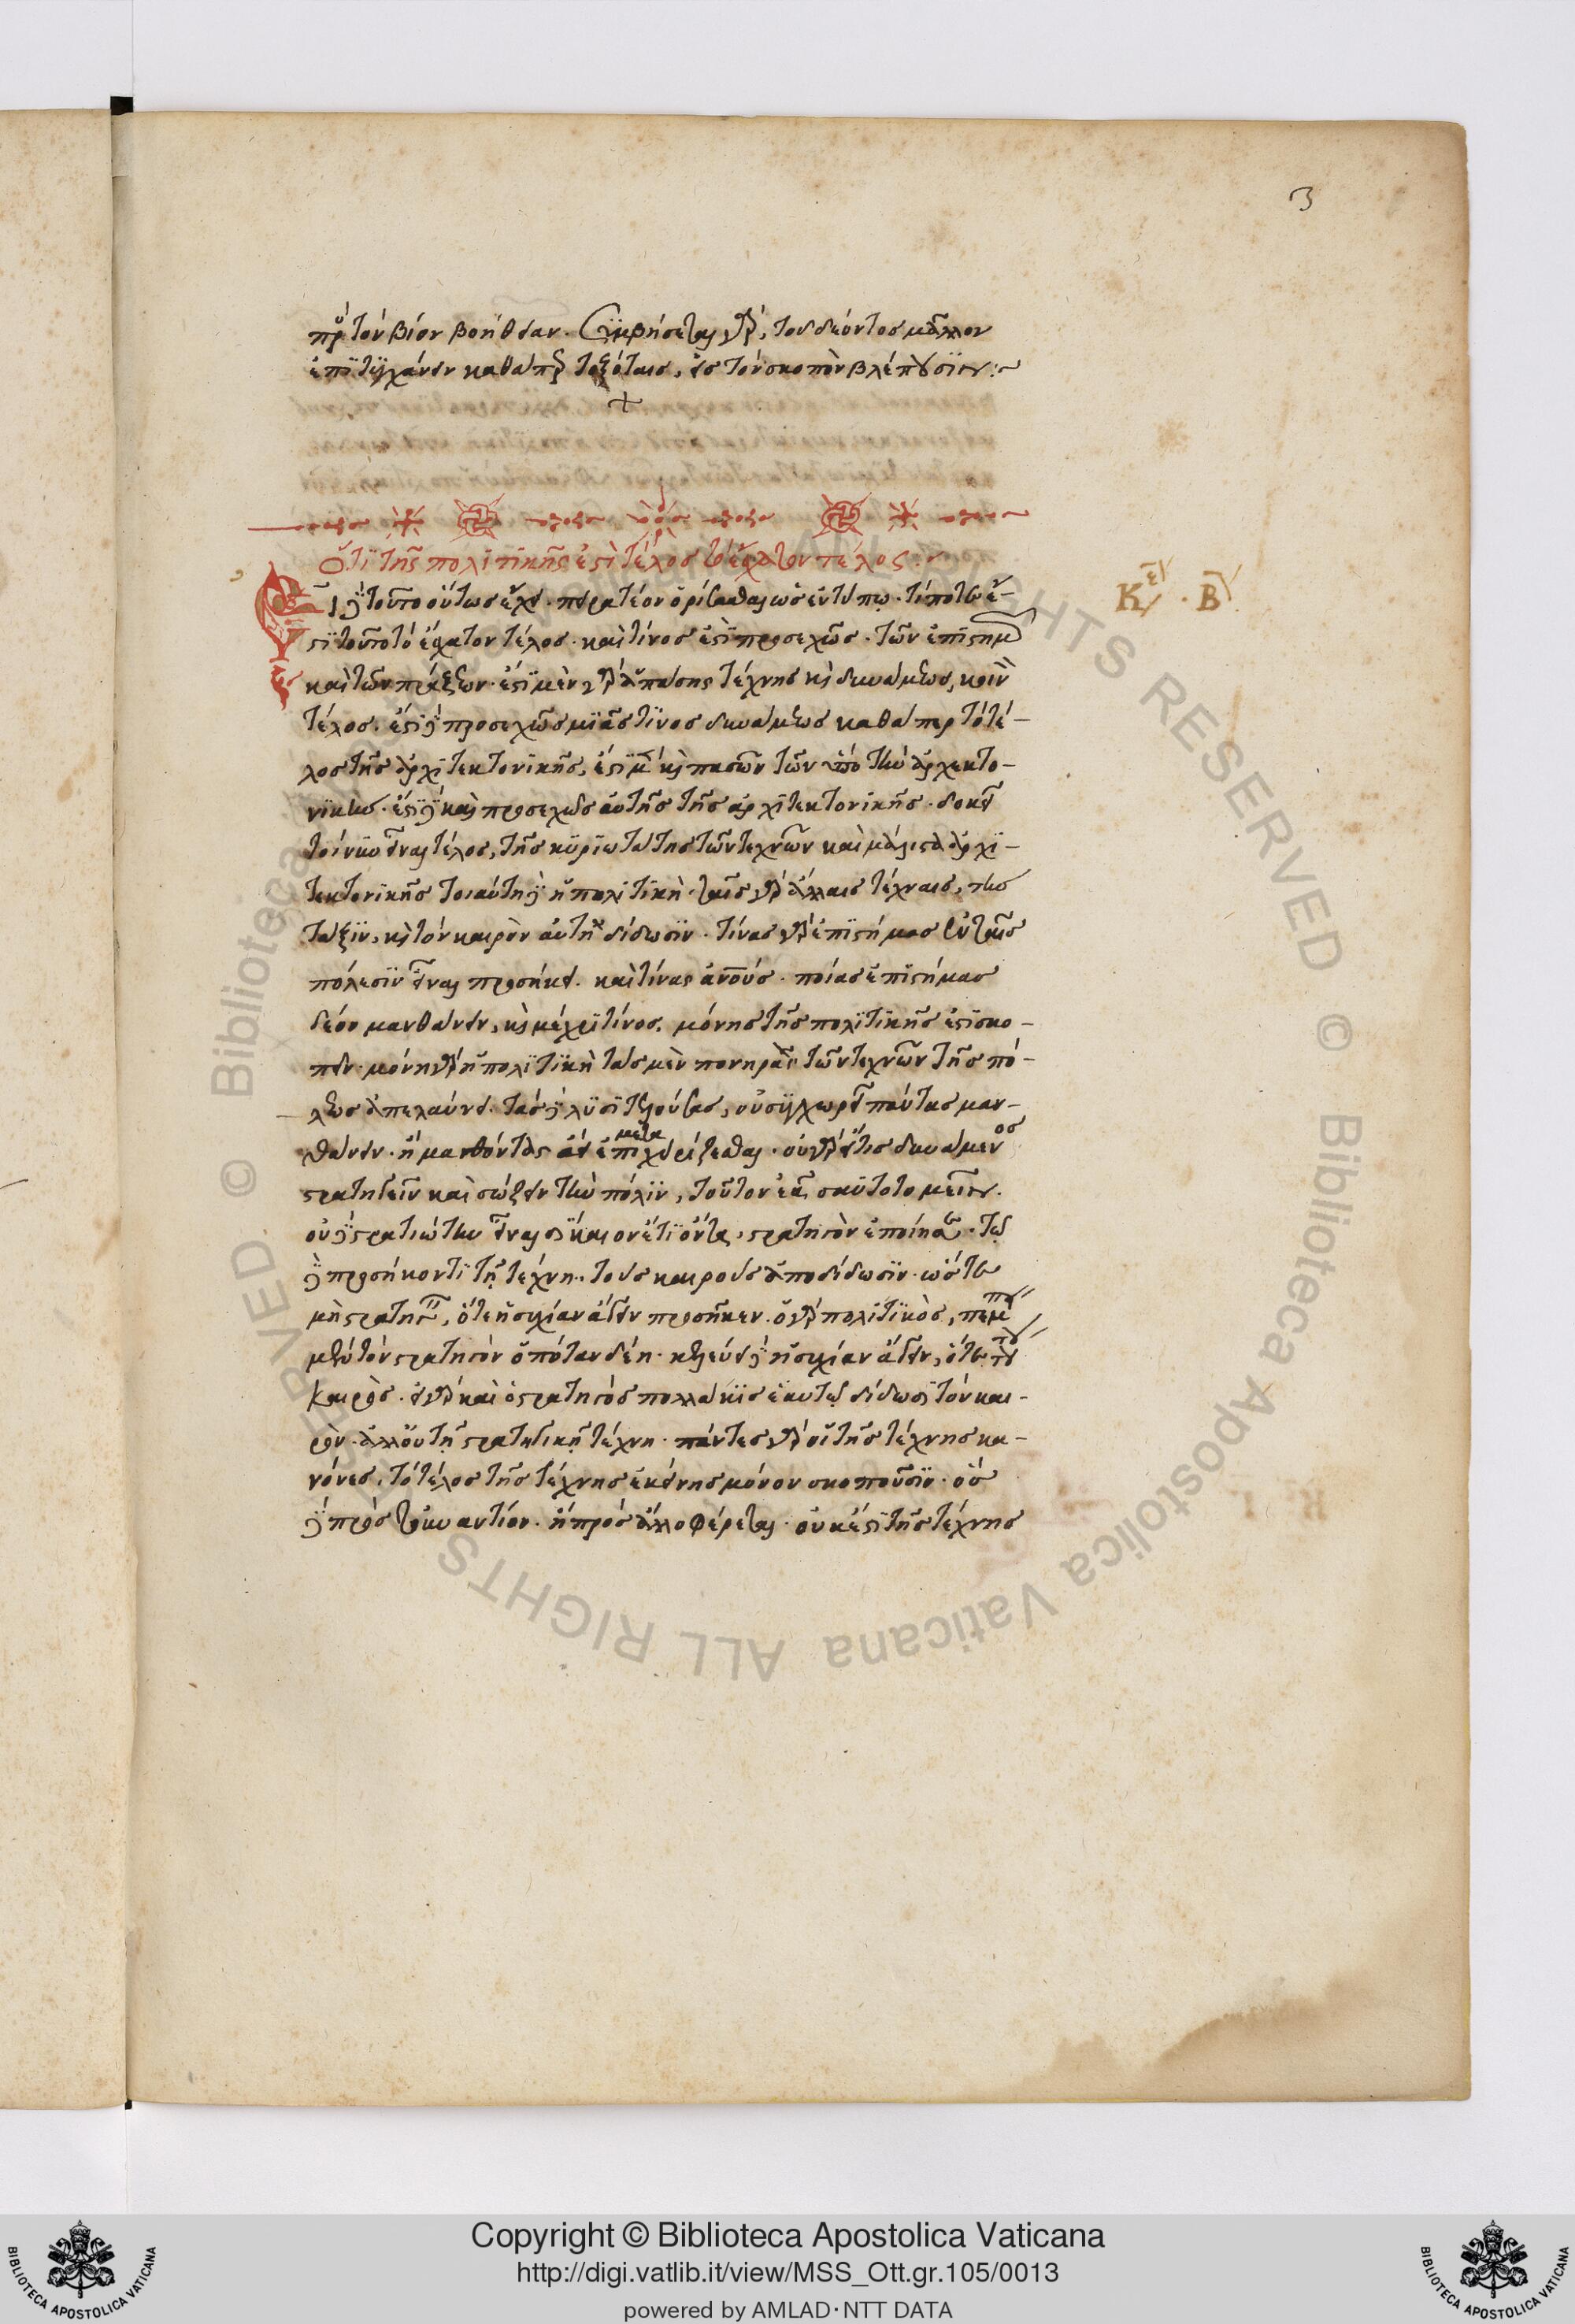 3
πρὸς τὸν βίον βοήθειαν. Συμβήσεται γὰρ, τοῦ δέοντος μᾶλλον
ἐπιτυγχάνειν καθάπερ τοξόταις, εἰς τὸν σκοπὸν βλέπουσιν:~
ὅτι τῆς πολιτικῆς ἐστὶ τέλος τὸ ἔσχατον τέλος:~
Κεφ. Β
Εἰ δὲ τοῦτο οὕτως ἔχει. πειρατέον ὁρίσασθαι ὡς ἐν τύπῳ. τί ποτε ἔ-
στι τοῦτο τὸ ἔσχατον τέλος. καὶ τίνος ἐστὶ προσεχῶς. τῶν ἐπιστημῶν
καὶ τῶν πράξεων. ἔστι μὲν γὰρ ἁπάσης τέχνης καὶ δυνάμεως, κοινὸν
τέλος. ἔστι δὲ προσεχῶς μιᾶς τινος δυνάμεως καθάπερ τὸ τέ-
λος τῆς ἀρχιτεκτονικῆς, ἔστι μὲν καὶ πασῶν τῶν ὑπὸ τὴν ἀρχιτεκτο-
νικὴν. ἔστι δὲ καὶ προσεχῶς αὐτῆς τῆς ἀρχιτεκτονικῆς. δοκεῖ
τοίνυν εἶναι τέλος, τῆς κυριωτάτης τῶν τεχνῶν καὶ μάλιστα ἀρχι-
τεκτονικῆς τοιαύτη δὲ ἡ πολιτικὴ. ταῖς γὰρ ἄλλαις τέχναις, τὴν
τάξιν, καὶ τὸν καιρὸν αὕτη δίδωσιν. τίνας γὰρ ἐπιστήμας ἐν ταῖς
πόλεσιν εἶναι προσήκει. καὶ τίνας ἀνθρώπους. ποίας ἐπιστήμας
δέον μανθάνειν, καὶ μέχρι τίνος, μόνης τῆς πολιτικῆς ἐστὶ σκο-
πεῖν. μόνη γὰρ ἡ πολιτικὴ τὰς μὲν πονηρὰς τῶν τεχνῶν τῆς πό-
λεως ἀπελαύνει. τὰς δὲ λυσιτελούσας, οὐ συγχωρεῖ πάντας μαν-
θάνειν. ἢ μανθόντας ἀεὶ μεταχειρίζεσθαι. οὐ γὰρ εἴ τις δυνάμενος
στρατηγεῖν καὶ σώζειν τὴν πόλιν, τοῦτον ἐᾷ σκυτοτομεῖν.
οὐδὲ στρατιώτην εἶναι δίκαιον ἔτι ὄντα, στρατηγὸν ἐποίησε. τῷ
δὲ προσήκοντι τῇ τέχνῃ. τοὺς καιροὺς ἀποδίδωσιν. ὥστε
μὴ στρατηγεῖν, ὅτε ἡσυχίαν ἄγειν προσῆκεν. ὁ γὰρ πολιτικὸς, πέμπει
μὲν τὸν στρατηγὸν ὁπόταν δέῃ. κελεύει δὲ ἡσυχίαν ἄγειν, ὅτε τούτου
καιρὸς. εἰ γὰρ καὶ ὁ στρατηγὸς πολλάκις ἑαυτῷ δίδωσι τὸν και-
ρὸν. ἀλλ' οὐ τῇ στρατηγικῇ τέχνῃ. πάντες γὰρ οἱ τῆς τέχνης κα-
νόνες, τὸ τέλος τῆς τέχνης ἐκείνης μόνον σκοποῦσιν. ὃς
δὲ πρὸς τοὐναντίον. ἢ πρὸς ἄλλο φέρεται. οὐκ ἔστι τῆς τέχνης
Copyright © Biblioteca Apostolica Vaticana
http://digi.vatlib.it/view/MSS_Ott.gr.105/0013
powered by AMLAD·NTT DATA
BIBLIOTECA APOSTOLICA VATICANA
BIBLIOTECA APOSTOLICA VATICANA
© Biblioteca Apostolica Vaticana ALL RIGHTS RESERVED